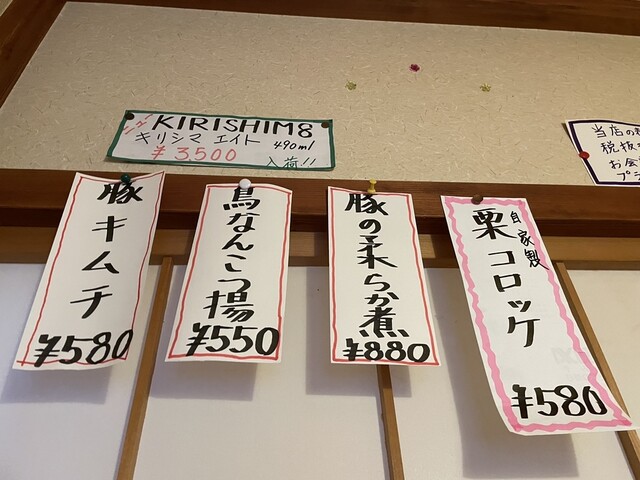 KIRISHIM8
キリシマ エイト 490ml
¥3,500 入荷!!
豚キムチ
¥580
鳥なんこつ揚
¥550
豚の柔らか煮
¥880
自家製
栗コロッケ
¥580
当店の
税抜
お会
プラ